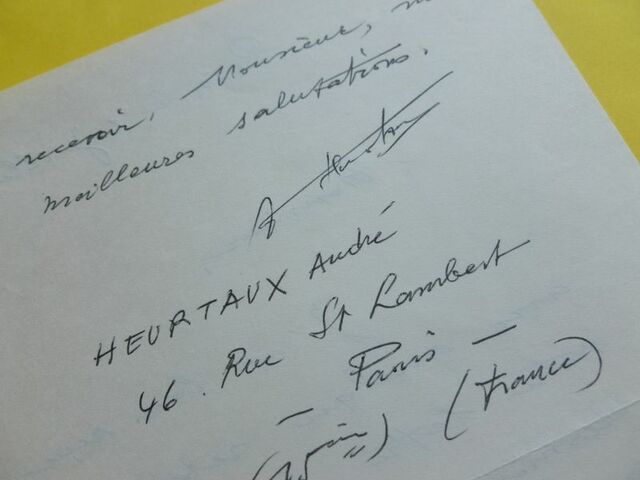 recevoir, Monsieur, m
meilleures salutations.
A Heurtaux
HEURTAUX André
46. Rue St Lambert
— Paris —
(15ème) (France)